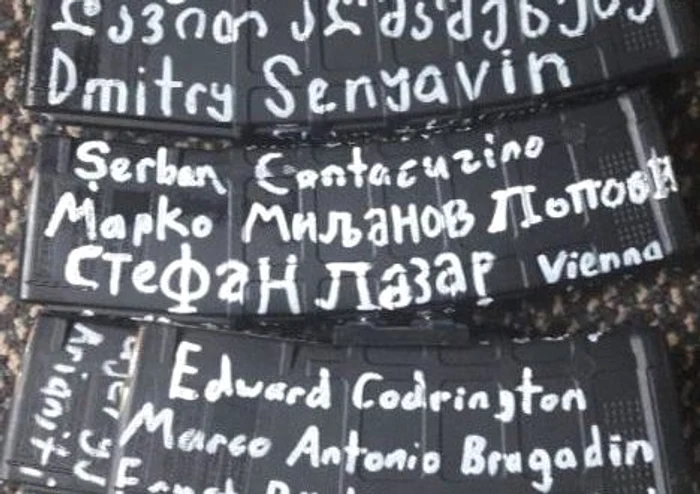 Dmitry Senyavin
Şerban Cantacuzino
Марко Миљанов Попови
Стефан Лазар Vienna
Edward Codrington
Marco Antonio Bragadin
Arianiti